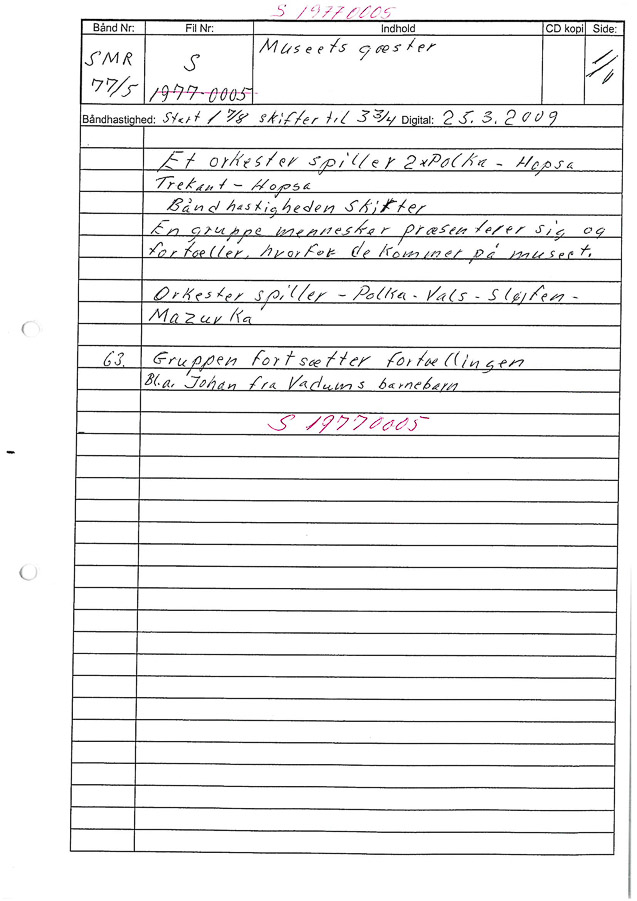 S 19770005
Bånd Nr: Fil Nr: Indhold CD kopi Side:
SMR S Museets gæster 1/1
77/5 1977-0005
Båndhastighed: Start 1 7/8 skifter til 3 3/4 Digital: 25.3.2009
Et orkester spiller 2xPolka - Hopsa
Trekant - Hopsa
Båndhastigheden Skifter
En gruppe mennesker præsenterer sig og
fortæller, hvorfor de kommer på museet.
Orkester spiller - Polka - Vals - Sløjfen -
Mazurka
63. Gruppen fortsætter fortællingen
Bl.a. Johan fra Vadums barnebarn
S 19770005